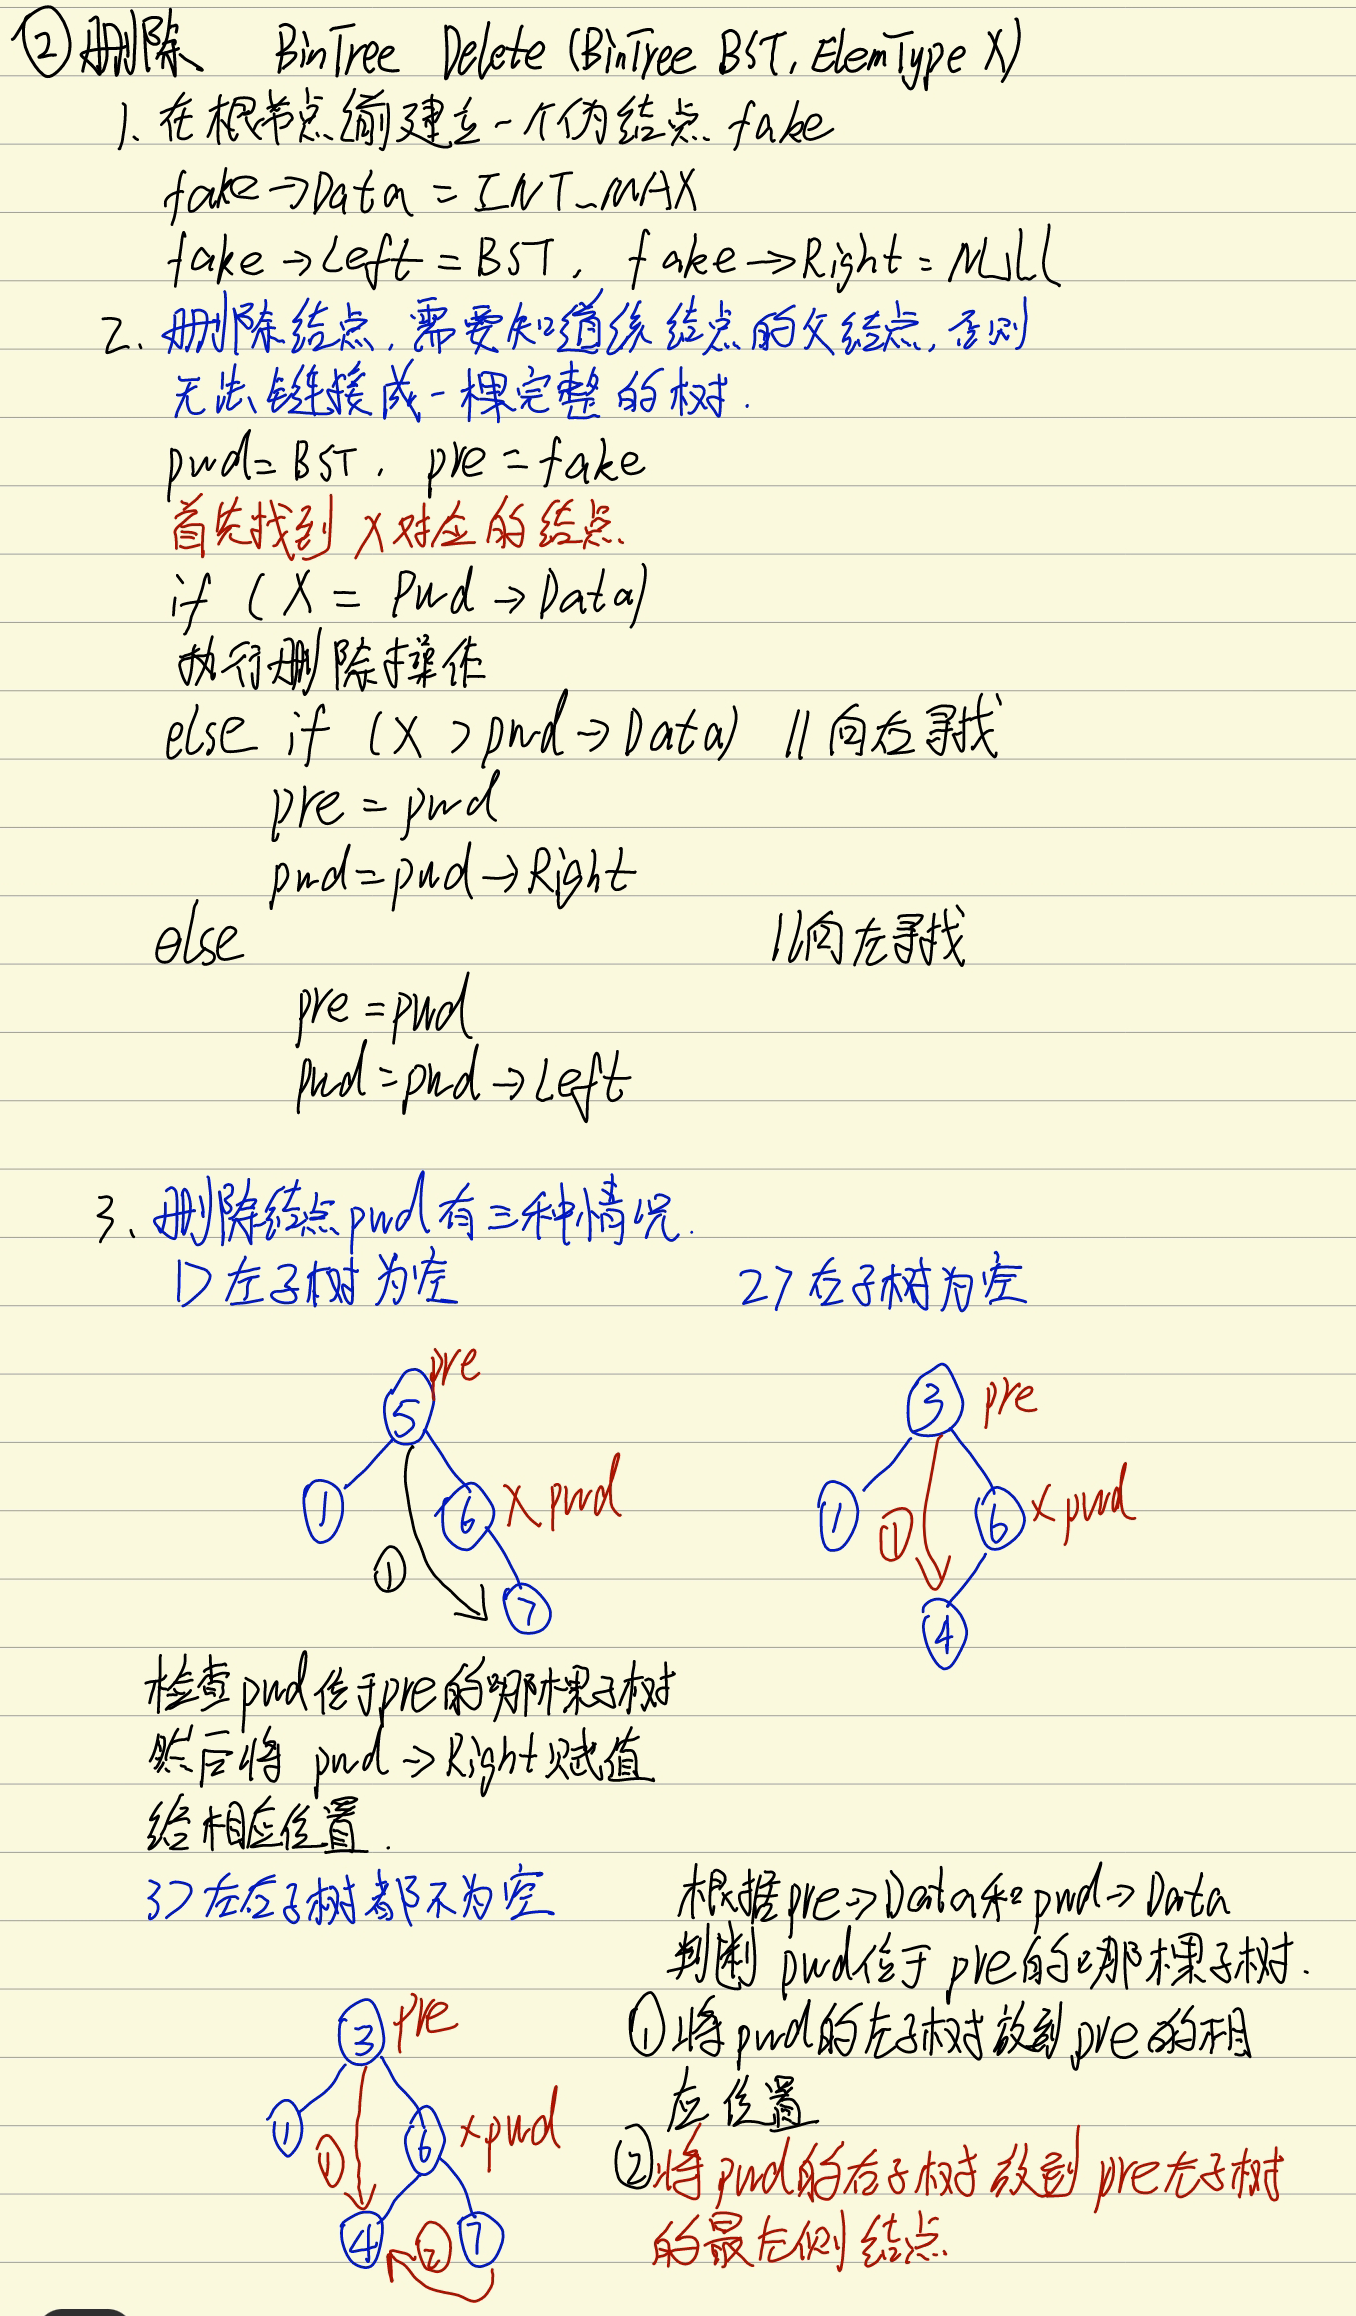 ② 删除 BinTree Delete (BinTree BST, ElemType X)
1. 在根节点前建立一个伪结点 fake
fake→Data = INT_MAX
fake→Left = BST, fake→Right = NULL
2. 删除结点,需要知道该结点的父结点,否则
无法链接成一棵完整的树.
pwd = BST, pre = fake
首先找到 X对应的结点
if (X = Pwd→Data)
执行删除操作
else if (X > pwd→Data) //向右寻找
pre = pwd
pwd = pwd→Right
else //向左寻找
pre = pwd
pwd = pwd→Left
3. 删除结点pwd有三种情况.
1> 左子树为空 2> 右子树为空
pre
5
1
6
X pwd
①
7
3
pre
1
①
6
X pwd
4
检查pwd位于pre的哪棵子树
然后将 pwd→Right赋值
给相应位置.
3> 左右子树都不为空
3
pre
1
①
6
X pwd
4
②
7
根据pre→Data和pwd→Data
判断 pwd位于 pre的哪棵子树.
①将pwd的左子树放到pre的相
应位置
②将pwd的右子树放到 pre左子树
的最右侧结点